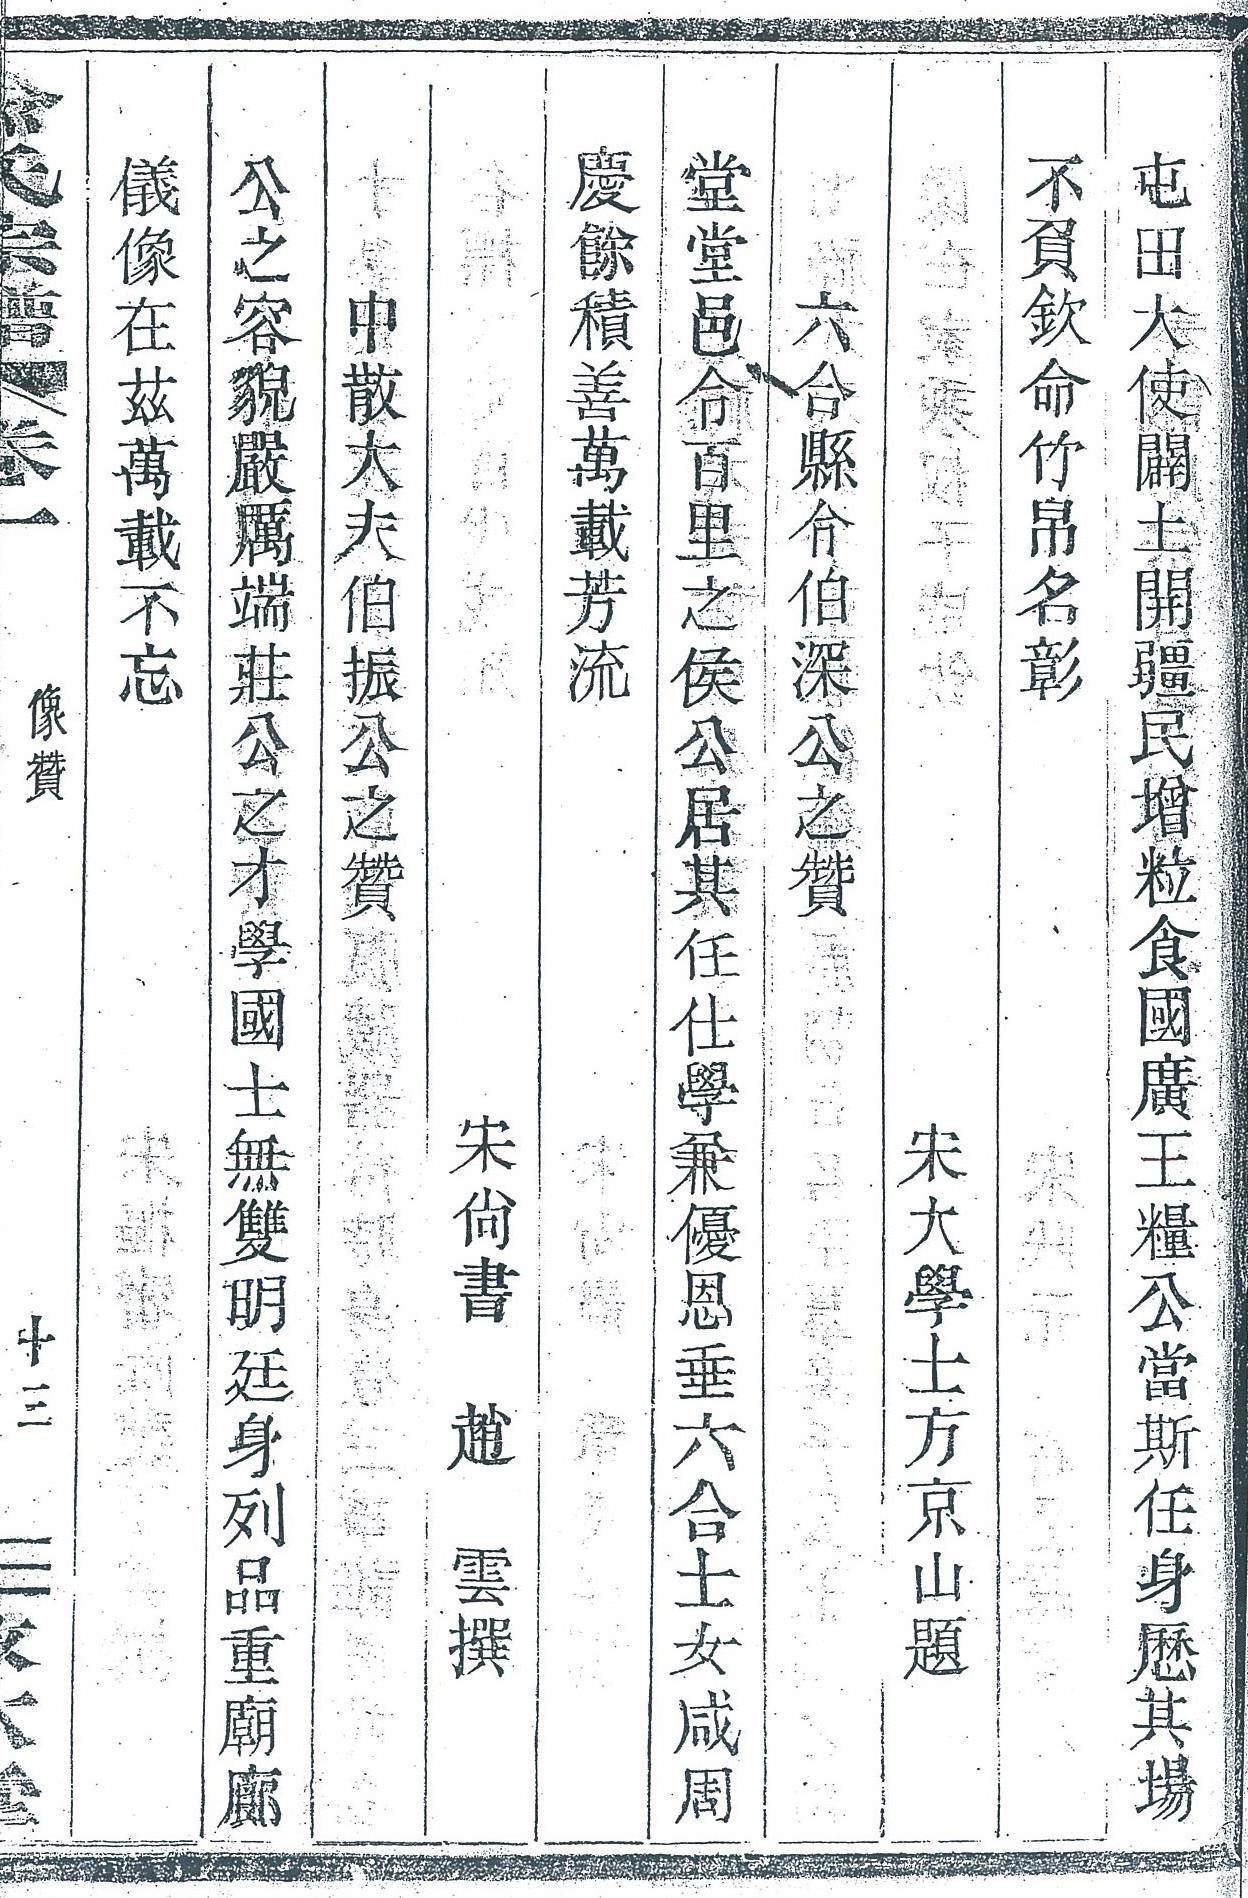 屯田大使闢土開疆民增粒食國廣王糧公當斯任身歷其場
不負欽命竹帛名彰
宋大學士方京山題
六合縣令伯深公之贊
堂堂邑令百里之侯公居其任仕學兼優恩垂六合士女咸周
慶餘積善萬載芳流
宋尙書 趙 雲撰
中散大夫伯振公之贊
公之容貌嚴厲端莊公之才學國士無雙明廷身列品重廟廊
儀像在茲萬載不忘
氏宗譜 卷一 像贊 十三